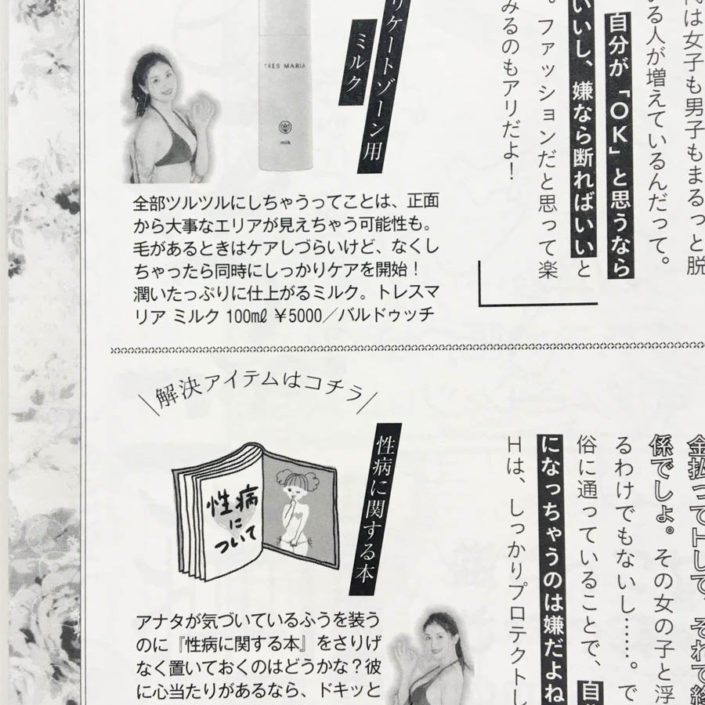 代は女子も男子もまるっと脱
いる人が増えているんだって。
自分が「OK」と思うなら
いいし、嫌なら断ればいいと
。ファッションだと思って楽
みるのもアリだよ！
リケートゾーン用
ミルク
TRES MARIA
milk
全部ツルツルにしちゃうってことは、正面
から大事なエリアが見えちゃう可能性も。
毛があるときはケアしづらいけど、なくし
ちゃったら同時にしっかりケアを開始！
潤いたっぷりに仕上がるミルク。トレスマ
リア ミルク 100㎖ ¥5000／バルドゥッチ
金払ってHして、それで終
係でしょ。その女の子と浮
るわけでもないし……。で
俗に通っていることで、自
になっちゃうのは嫌だよね
Hは、しっかりプロテクトし
\解決アイテムはコチラ/
性病に関する本
性病
に
ついて
アナタが気づいているふうを装う
のに『性病に関する本』をさりげ
なく置いておくのはどうかな？彼
に心当たりがあるなら、ドキッと